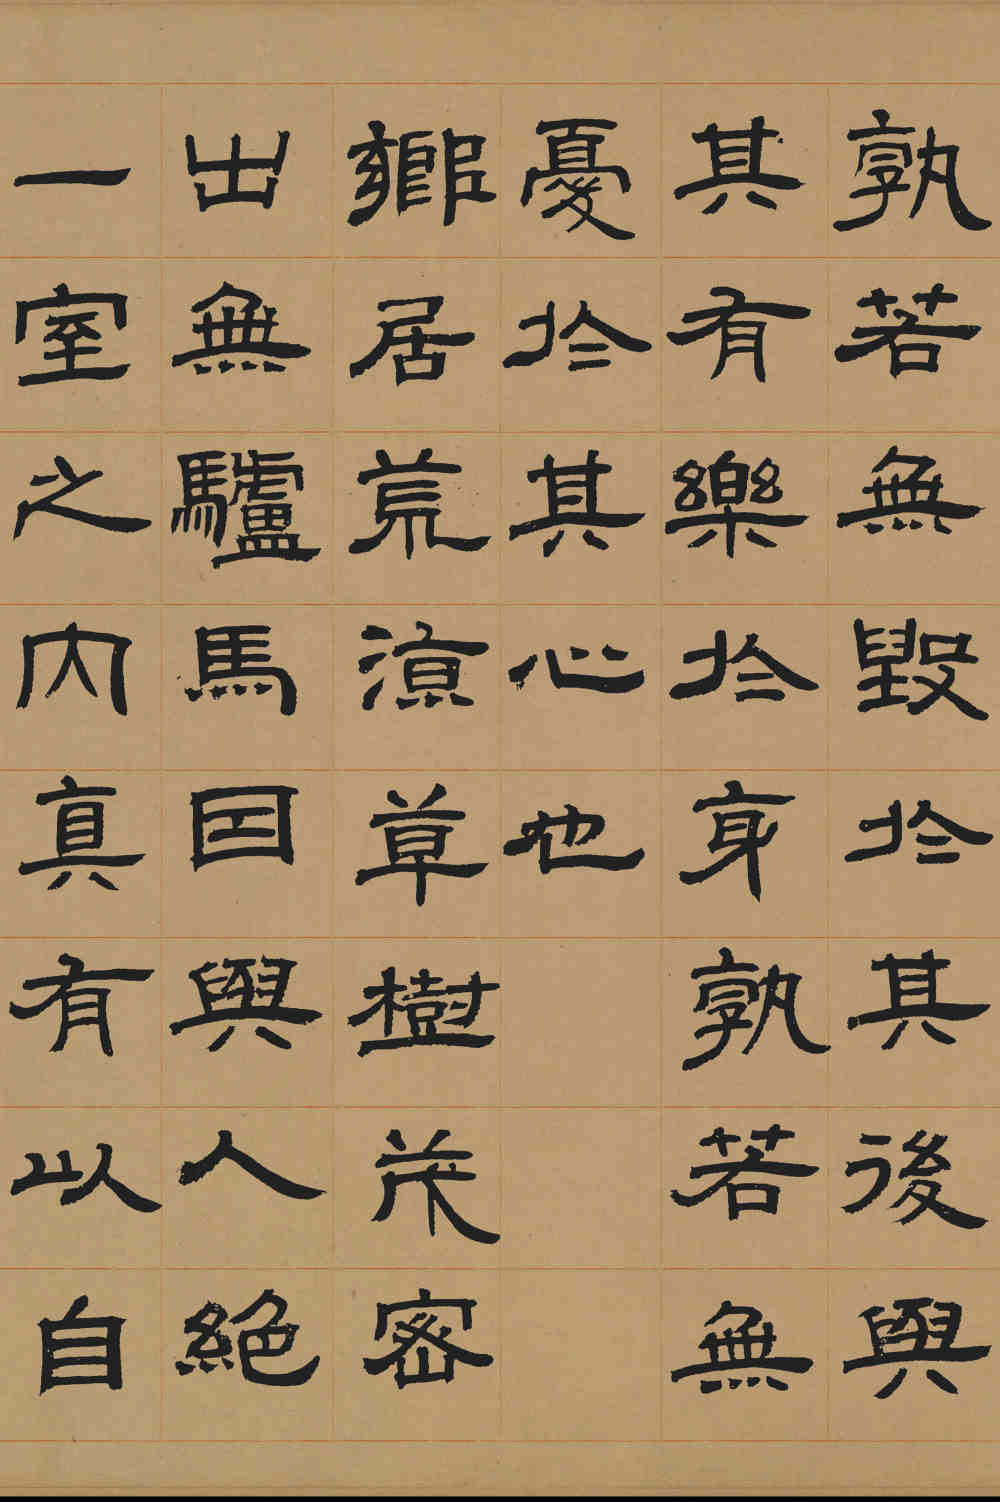 孰若無毀於其後與
其有樂於身孰若無
憂於其心也
鄉居荒涼草樹茂密
出無驢馬因與人絕
一室之內真有以自